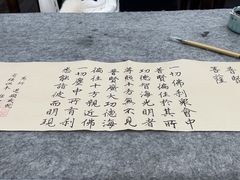 普賢
菩薩
一切佛刹眾會中
普賢徧住於其所
功德智海光明者
等照十方無不見
普賢廣大功德海
徧往十方親近佛
一切塵中所有刹
悉能詣彼而明現